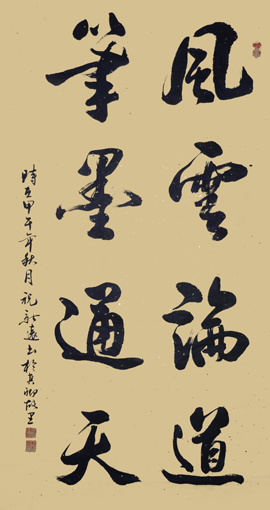 風雲論道
筆墨通天
時在甲午年秋月祝新遠書於吳卿故里